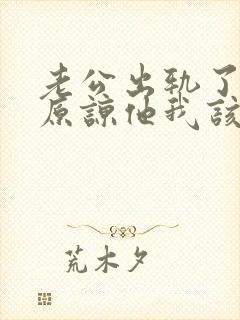 老公出轨了
原谅他我该
荒木夕